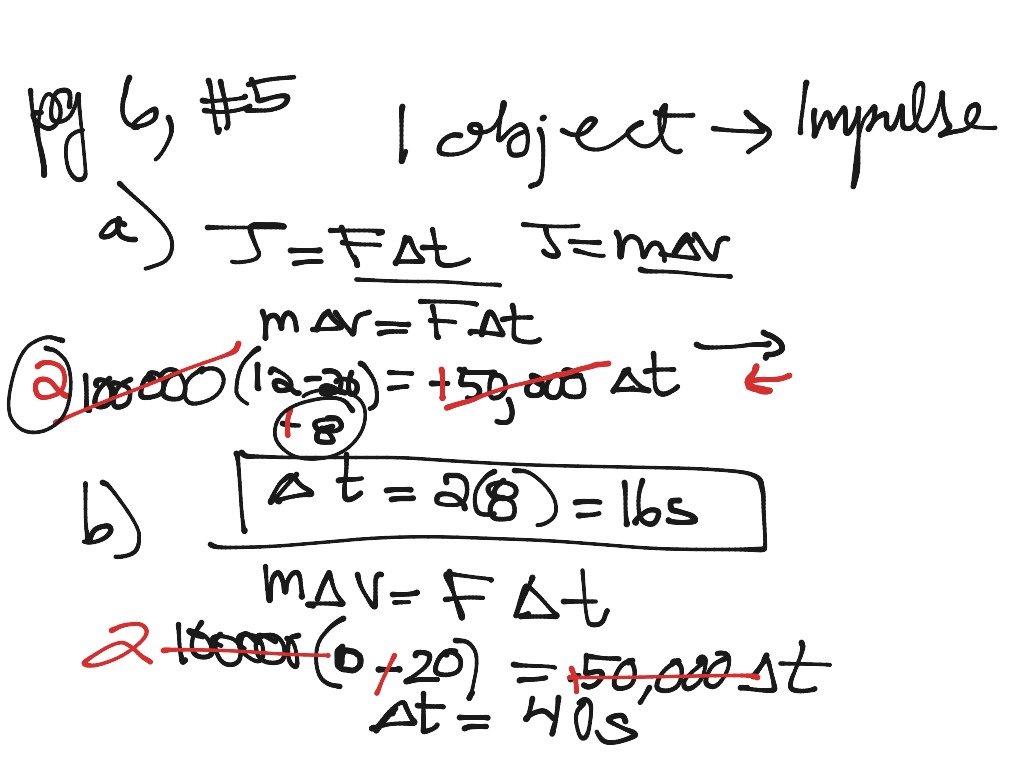 pg 6, #5
1 object → Impulse
a) J = FΔt J = mΔv
mΔv = FΔt
2 100000 (12-20) = +50,000 Δt
+8
Δt = 2(8) = 16s
b)
mΔv = FΔt
2 100000 (0-20) = +50,000 Δt
Δt = 40s